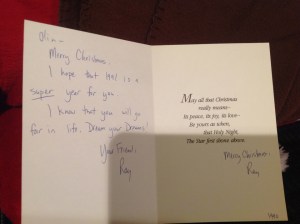 Olia -
Merry Christmas.
I hope that 1991 is a
super year for you.
I know that you will go
far in life. Dream your Dreams!
Your Friend,
Ray
May all that Christmas
really means—
Its peace, its joy, its love—
Be yours as when,
that Holy Night,
The Star first shone above.
Merry Christmas.
Ray